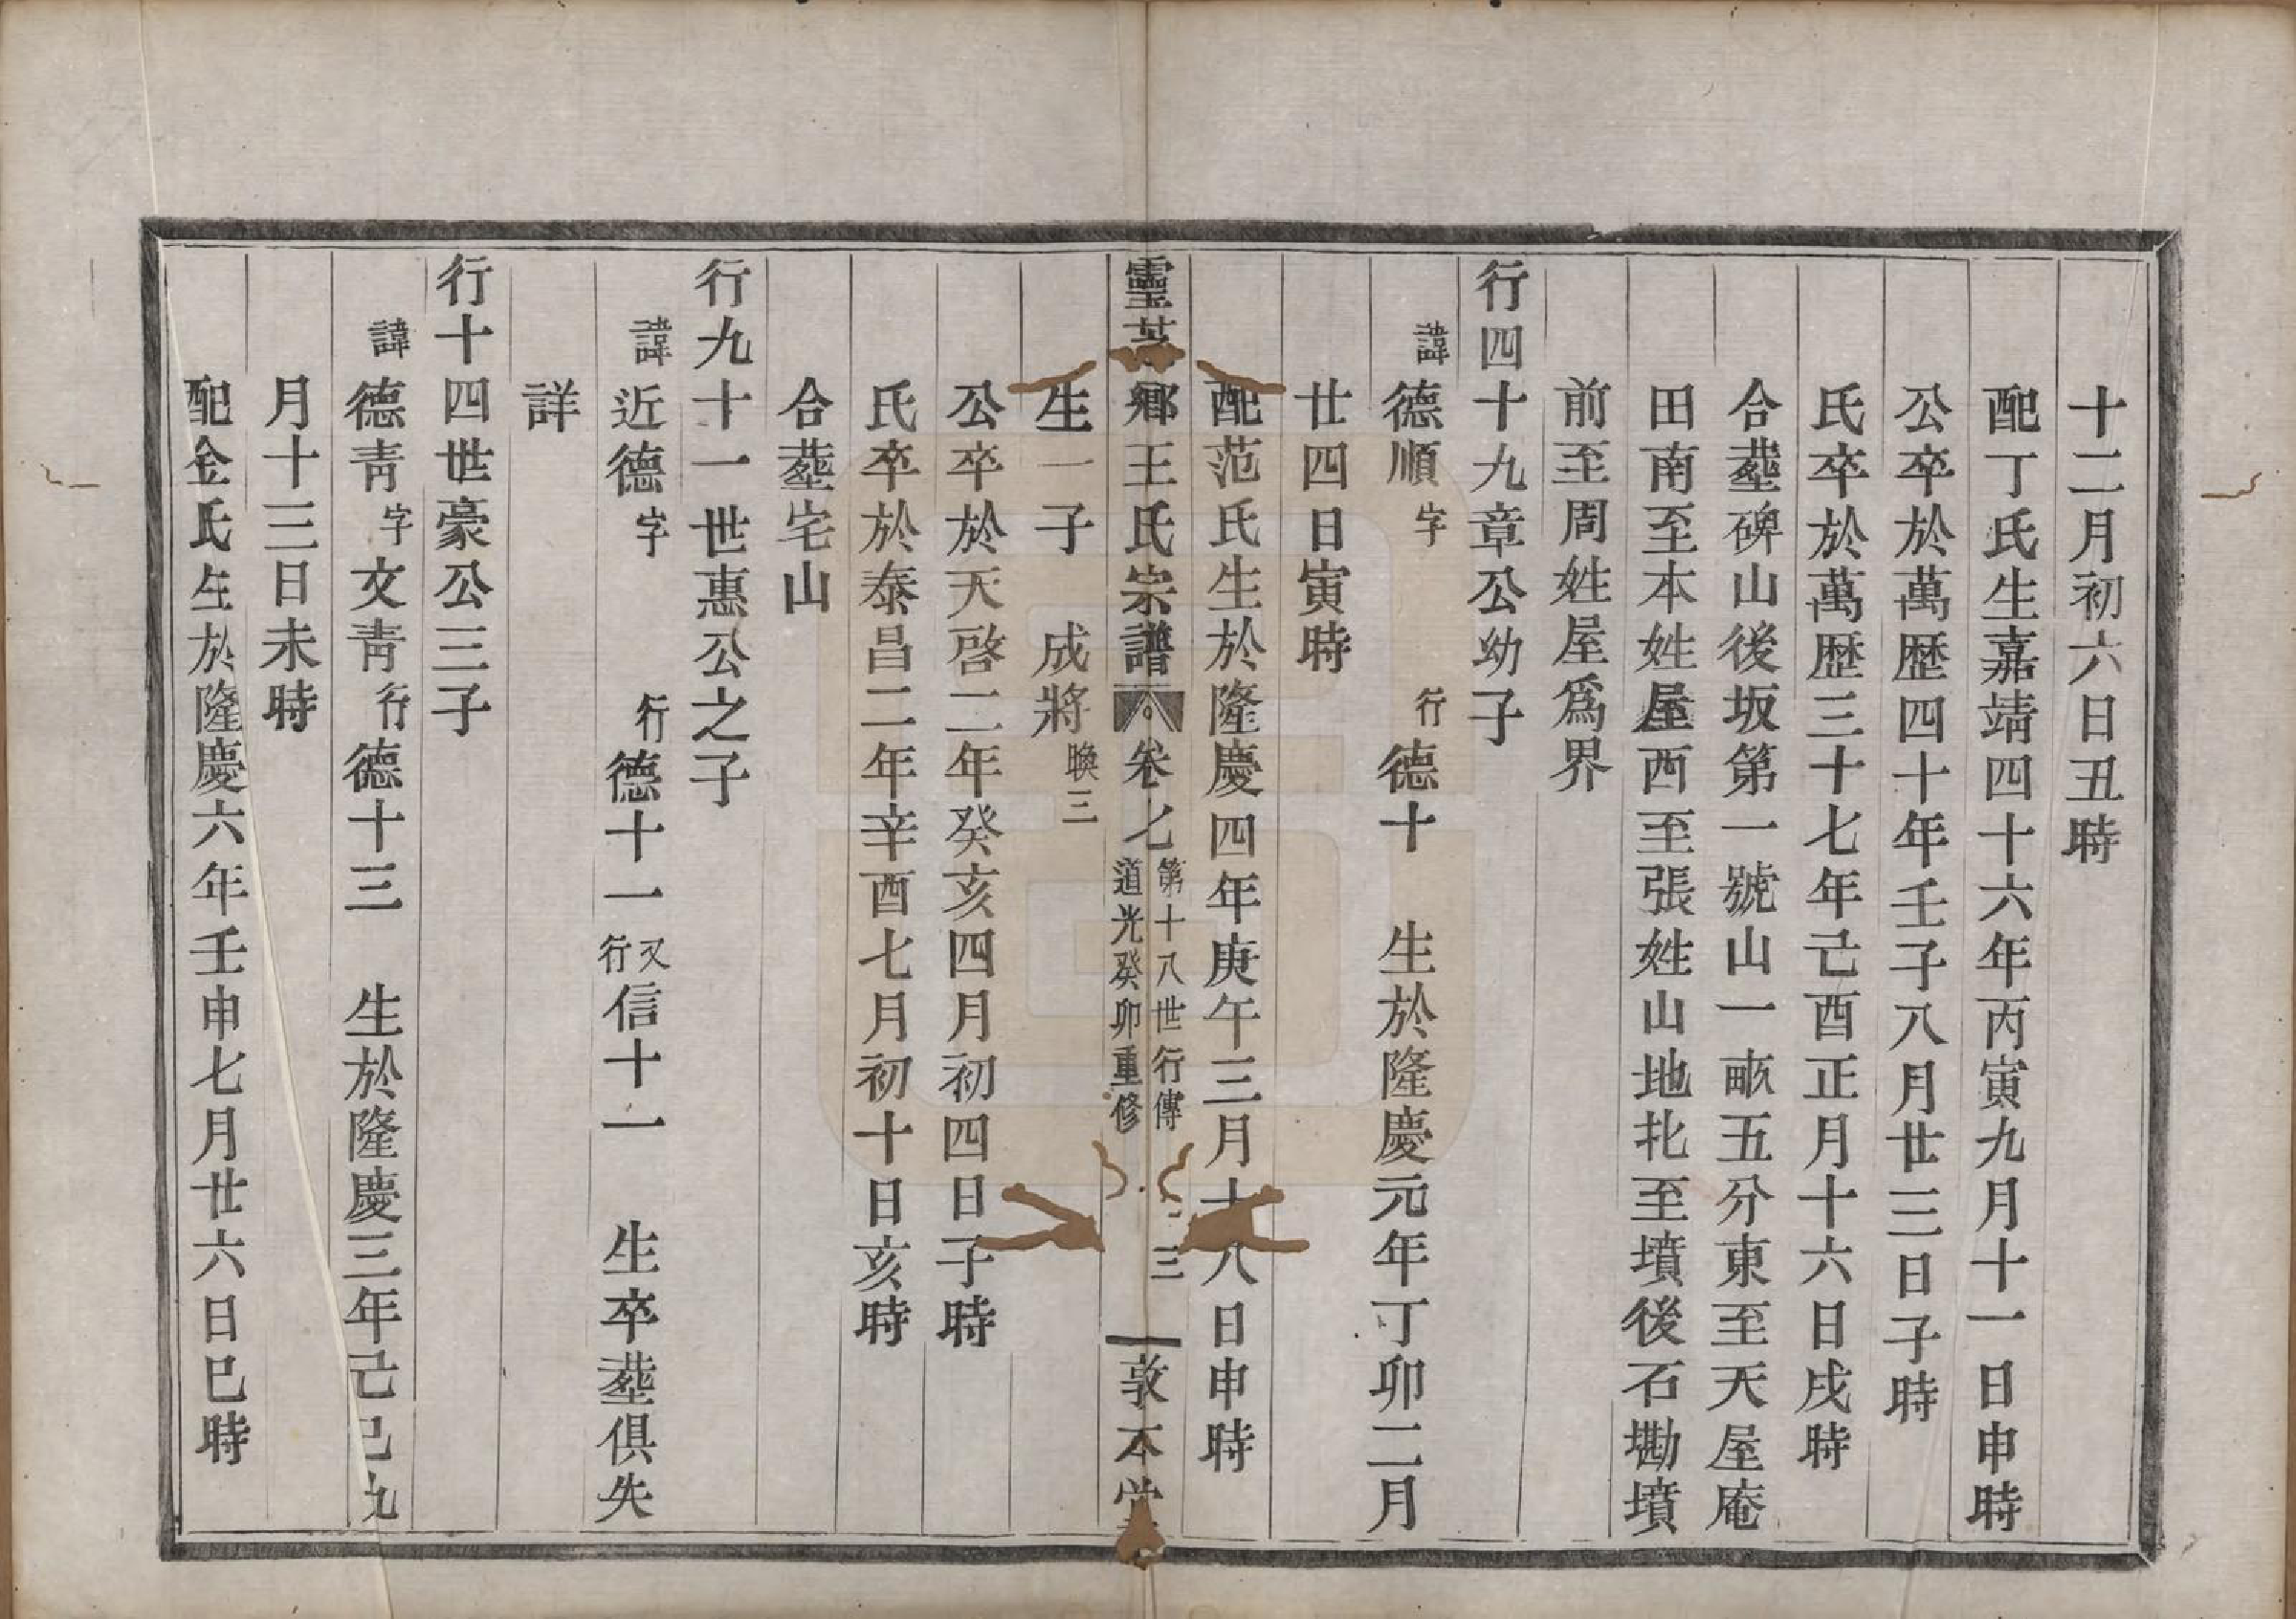 十二月初六日丑時
配丁氏生嘉靖四十六年丙寅九月十一日申時
公卒於萬歴四十年壬子八月廿三日子時
氏卒於萬歴三十七年己酉正月十六日戌時
合塟碑山後坂第一號山一畝五分東至天屋庵
田南至本姓屋西至張姓山地北至墳後石磡墳
前至周姓屋爲界
行四十九章公幼子
諱德順字 行德十 生於隆慶元年丁卯二月
廿四日寅時
配范氏生於隆慶四年庚午三月十八日申時
靈芝鄉王氏宗譜 卷七 第十八世行傳 道光癸卯重修 三 敦本堂
生一子 成將 㬇三
公卒於天啓二年癸亥四月初四日子時
氏卒於泰昌二年辛酉七月初十日亥時
合塟宅山
行九十一世惠公之子
諱近德字 行德十一 又行信十一 生卒塟俱失
詳
行十四世豪公三子
諱德靑字文靑行德十三 生於隆慶三年己巳九
月十三日未時
配金氏生於隆慶六年壬申七月廿六日巳時